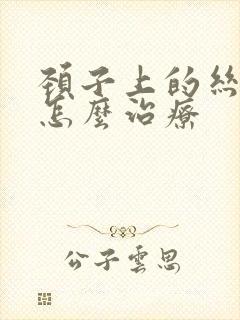 頸子上的絲
怎麼治療
公子雲思